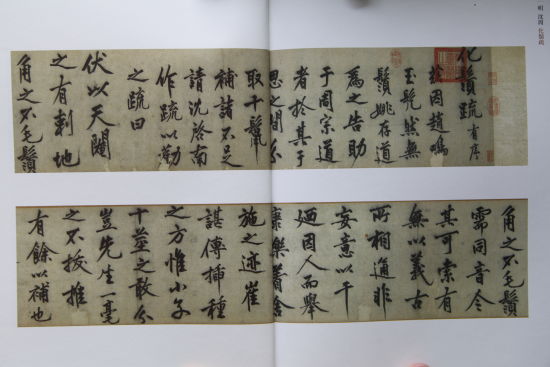 明 沈周 化鬚疏
化鬚疏有序
茲因趙鳴
玉髡然無
鬚姚存道
為之告助
于周宗道
者於其于
思之間分
取十鬣
補諸不足
請沈啓南
作疏以勸
之疏曰
伏以天閹
之有刺地
角之不毛鬚
角之不毛鬚
需同音今
其可索有
無以義古
所相通非
妄意以干
廼因人而舉
康樂著舍
施之迹崔
諶傳插種
之方惟小子
十莖之敢分
豈先生一毫
之不拔推
有餘以補也